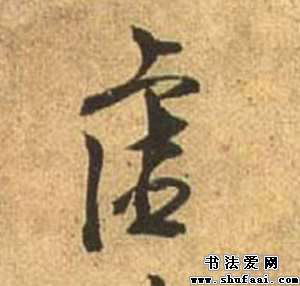 虚
书法爱网
www.shufaai.com